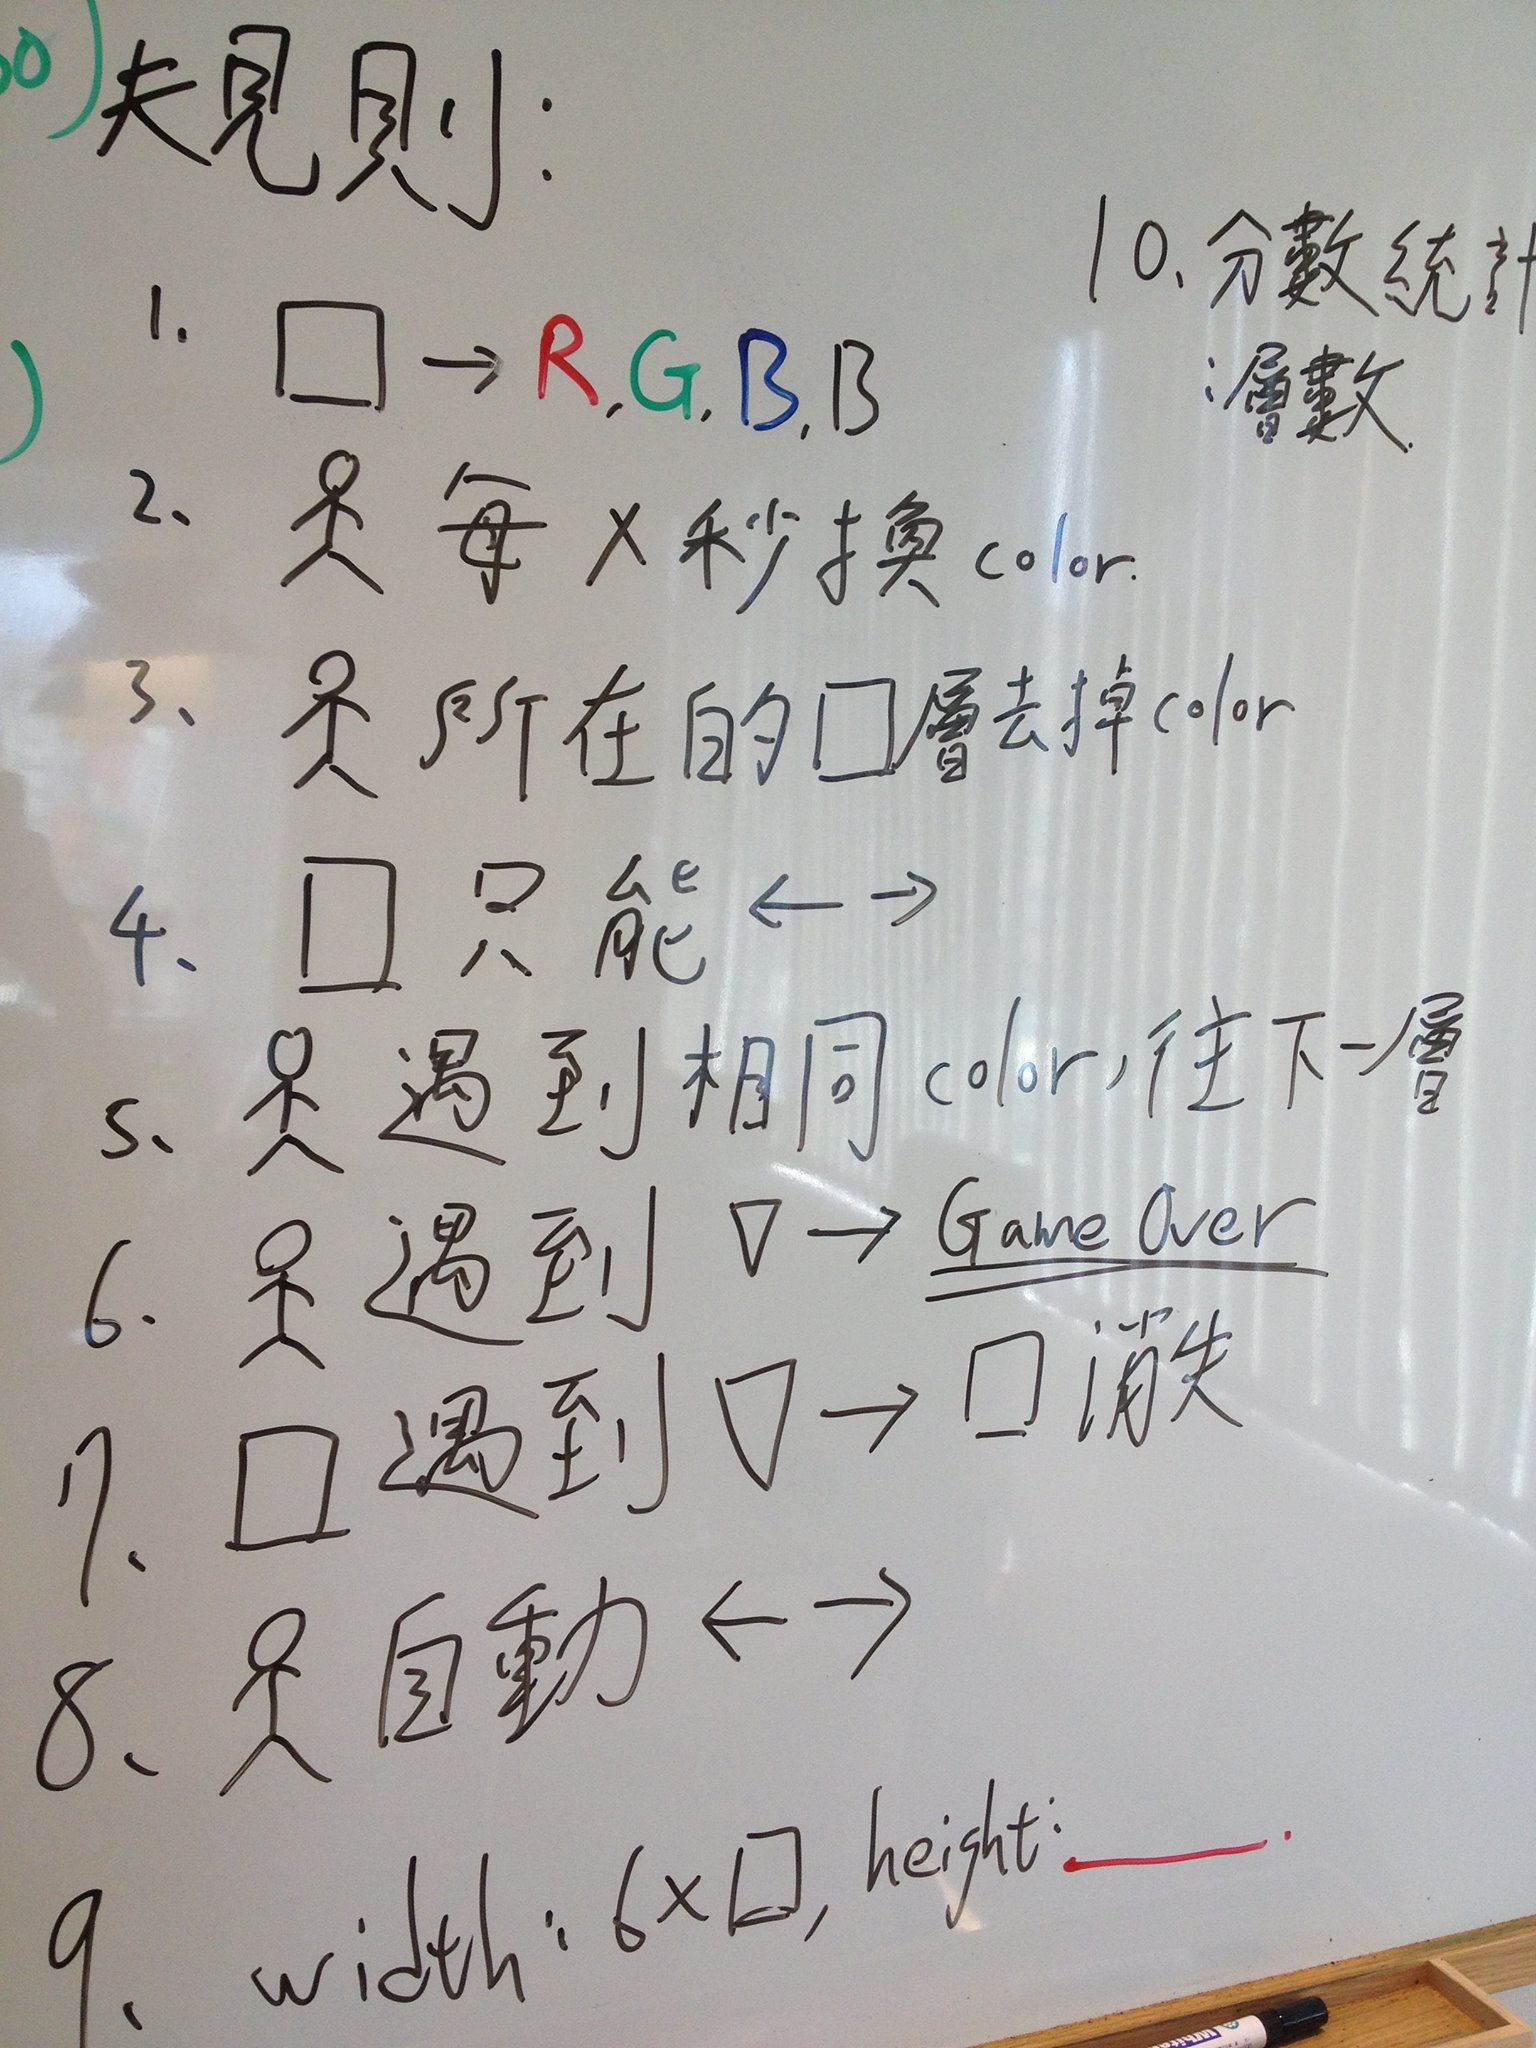 規則:
1. □ → R, G, B, B
2、 每 X 秒換 color.
3、 所在的□層去掉color
4、 □ 只能 ← →
5、 遇到相同color,往下一層
6. 遇到 ▽ → Game Over
7、 □ 遇到 ▽ → □ 消失
8、 自動 ← →
9、 width: 6×□, height:____.
10、分數統計
:層數.